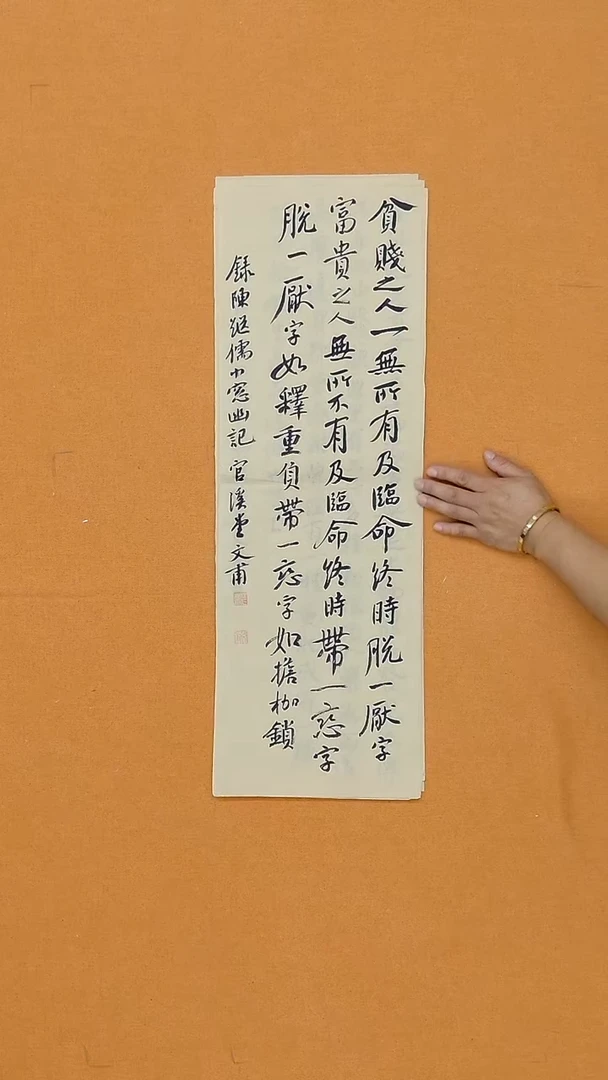 貧賤之人一無所有及臨命終時脫一厭字
富貴之人無所不有及臨命終時帶一戀字
脫一厭字如釋重負帶一戀字如擔枷鎖
錄陳繼儒小窗幽記 官溪堂文甫